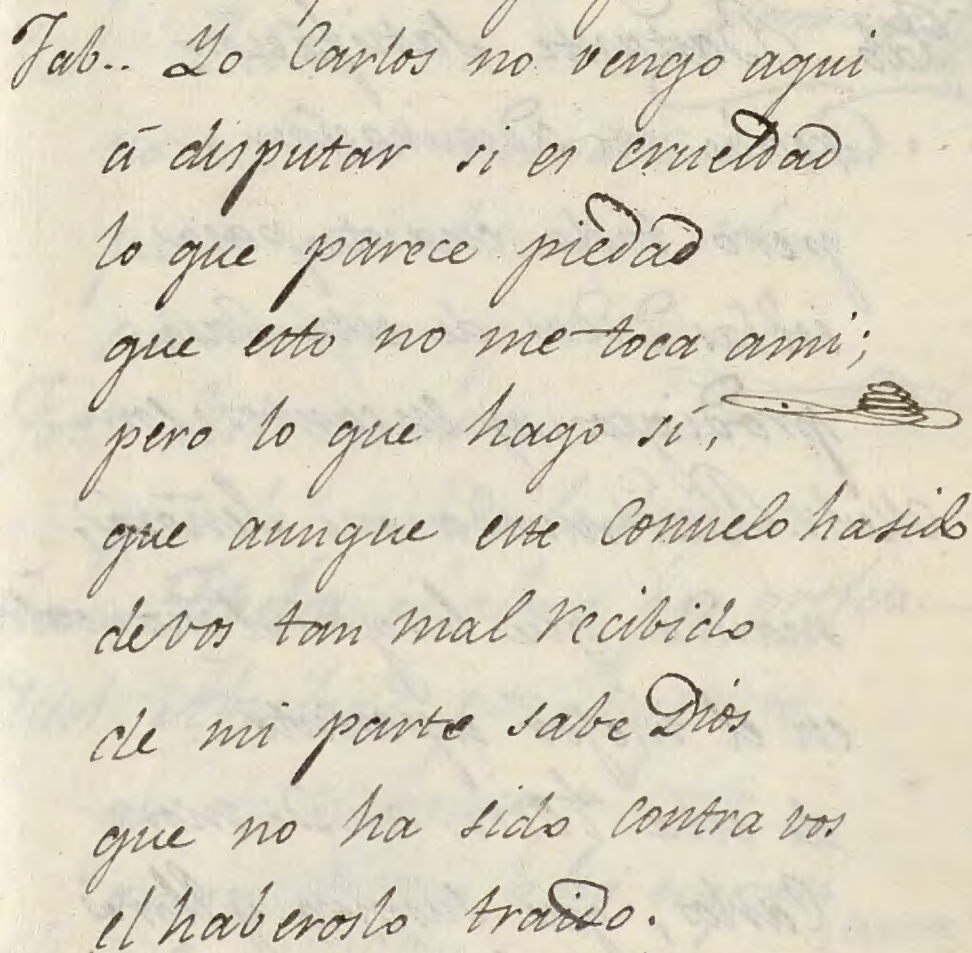 Fab.. Yo Carlos no vengo aqui
á disputar si es crueldad
lo que parece piedad
que esto no me toca ami;
pero lo que hago sí,
que aunque este Consuelo hasido
devos tan mal recibido
de mi parte sabe Dios
que no ha sido contra vos
el haberoslo traido.